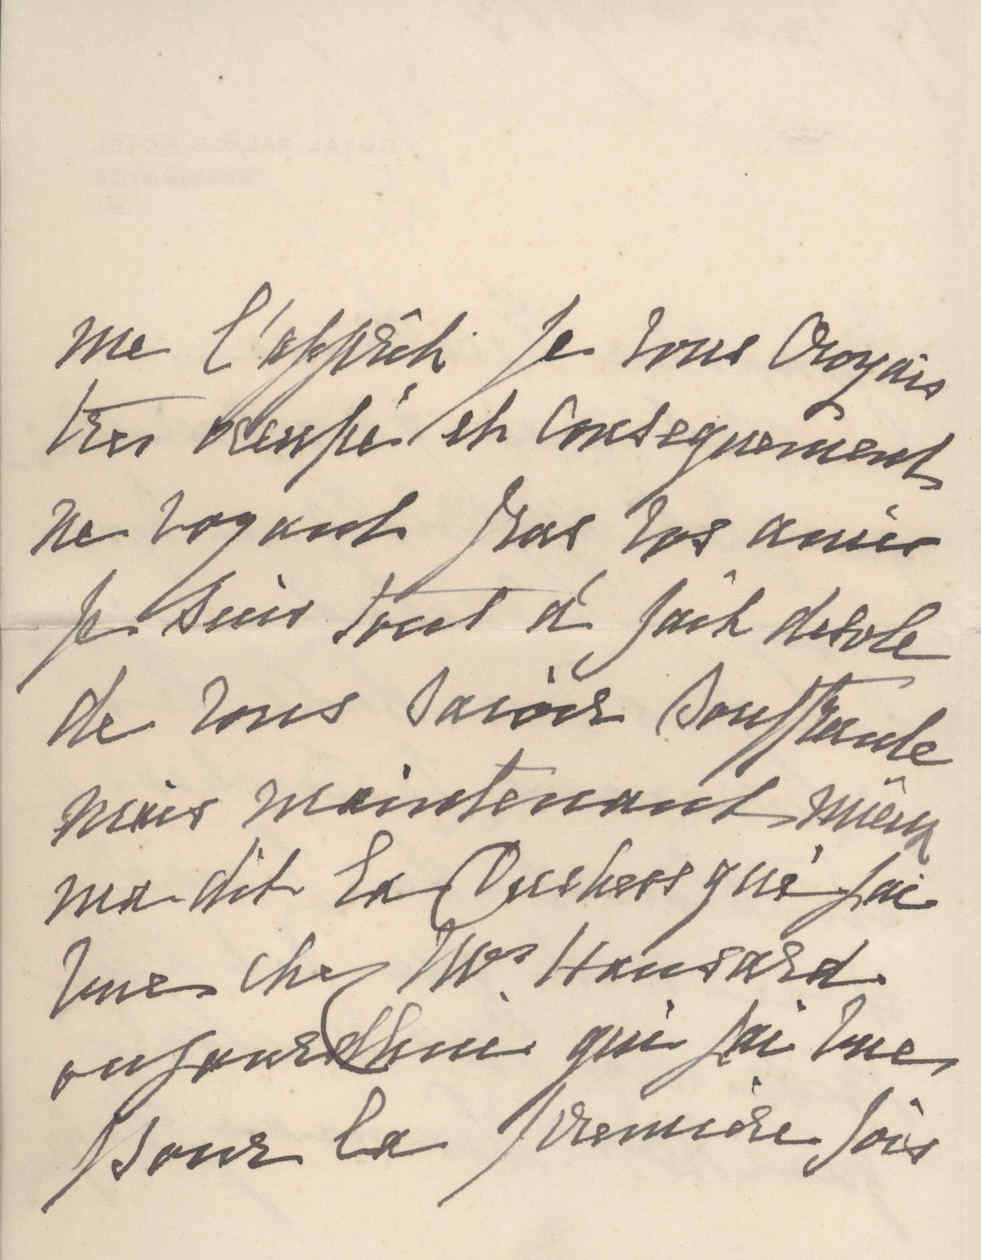 me l'apprêh je vous croyais
tres occupé et consequement
ne voyant pas vos amis
je suis tout à fait desole
de vous savoir souffrante
mais maintenant mieux
ma dit la Duchess que j'ai
vue chez Mrs Hansard
aujourd'hui qui j'ai vue
pour la première fois